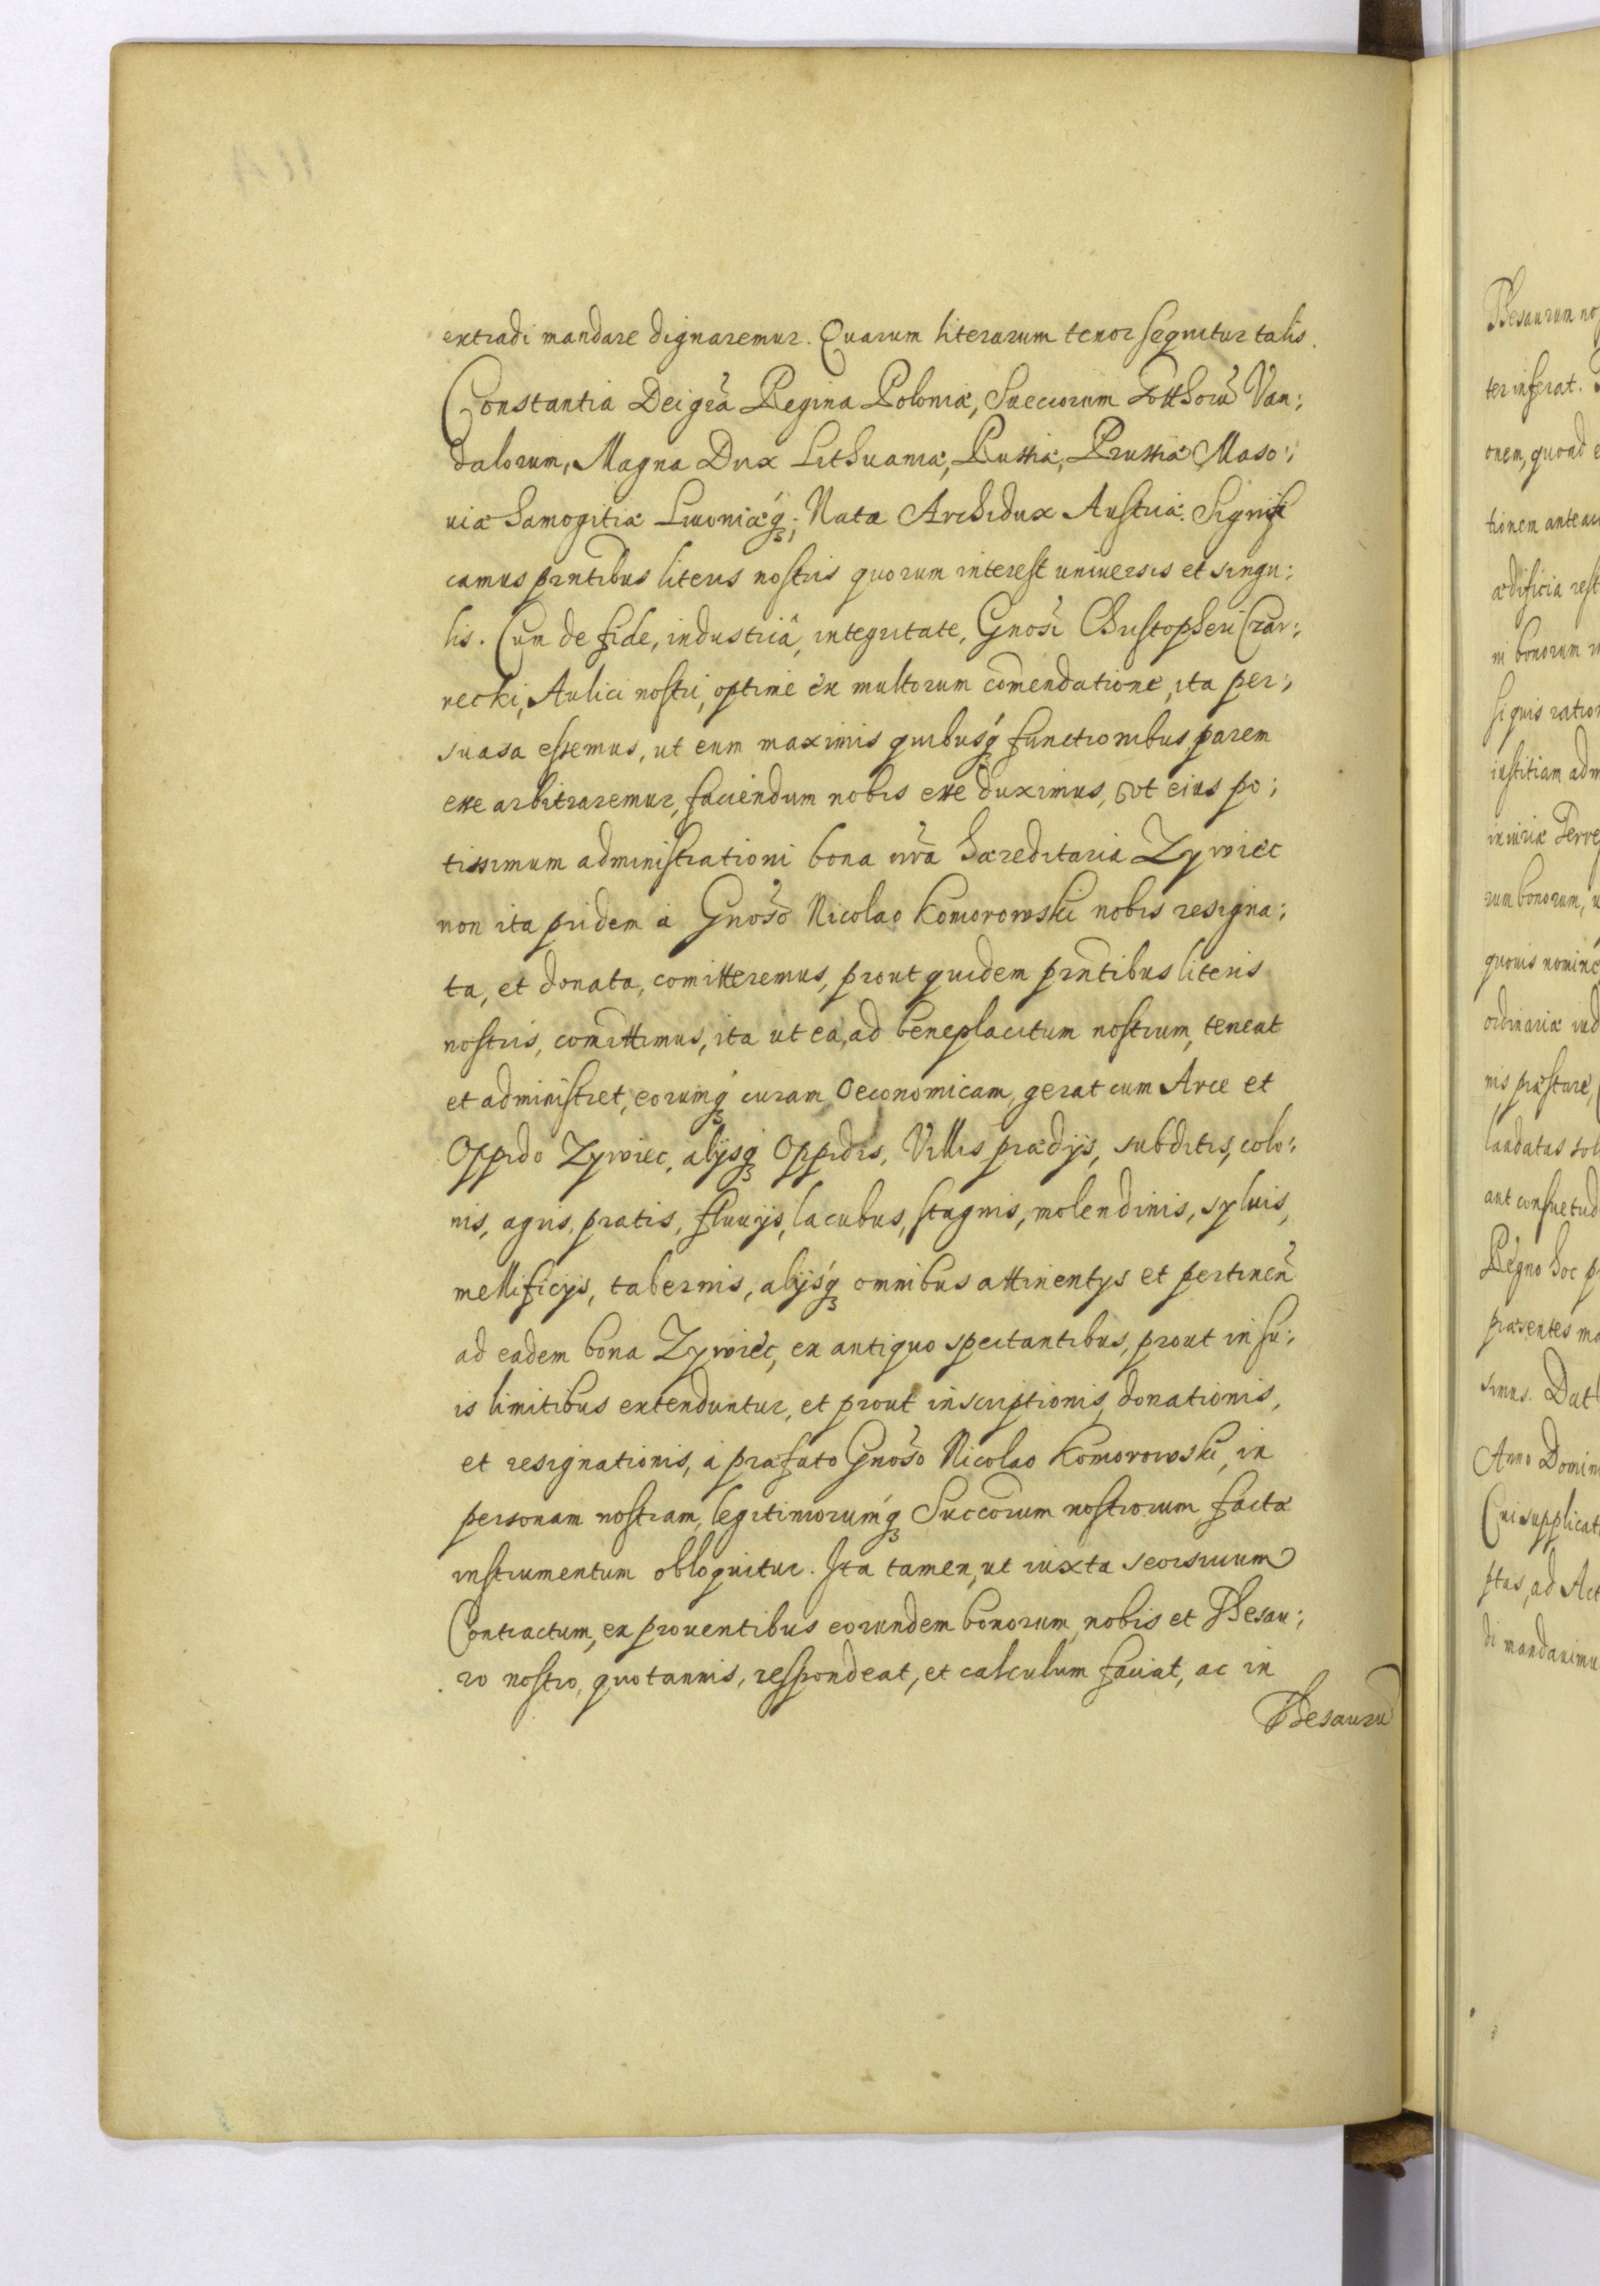 extradi mandare dignaremur. Quarum literarum tenor sequitur talis.
Constantia Dei gr̃a Regina Poloniæ, Sueciorum Gotthorũ Van:
dalorum, Magna Dux Lithuaniæ, Russiæ, Prussiæ Maso:
uiæ Samogitiæ Liuoniæq; Nata Archidux Austriæ. Signifi
camus pr̃ntibus literis nostris quorum interest uniuersis et singu:
lis. Cum de fide, industriâ, integritate, Gnosi Christopheri Czar:
necki, Aulici nostri, optime ex multorum com̃endatione, ita per:
suasa essemus, ut eum maximis quibusq functionibus parem
esse arbitraremur, faciendum nobis esse duximus, ut eius po:
tissimum administrationi bona nr̃a hæreditaria Zywiec
non ita pridem à Gnoso Nicolao Komorowski nobis resigna:
ta, et donata, comitteremus, prout quidem pr̃ntibus literis
nostris, com̃ittimus, ita ut ea, ad beneplacitum nostrum, teneat
et administret, eorumq curam Oeconomicam, gerat cum Arce et
Oppido Zywiec, alijsq Oppidis, Villis prædijs, subditis, colo:
nis, agris, pratis, fluuijs, lacubus, stagnis, molendinis, syluis,
mellificijs, tabernis, alijsq omnibus attinentijs et pertinen̄
ad eadem bona Zywiec, ex antiquo spectantibus, prout in su:
is limitibus extenduntur, et prout inscriptionis, donationis,
et resignationis, à præfato Gnoso Nicolao Komorowski, in
personam nostram, legitimorumq Succorum nostrorum factæ
instrumentum obloquitur. Ita tamen, ut iuxta seorsiuum
Contractum, ex prouentibus eorundem bonorum, nobis et Thesau:
ro nostro, quotannis, respondeat, et calculum faciat, ac in
Thesaurũ
Thesaurum no
ter inferat.
onem, quoad e
tionem antea
ædificia rest
ni bonorum
si quis ratio
iustitiam adm
iniuriæ Ferre
rum bonorum, u
quouis nomine
ordinariæ iud
nis præstare,
laudatas sol
aut consuetud
Regno hoc p
præsentes ma
simus. Dat
Anno Domin
Cui supplicat
stas, ad Act
di mandauimu